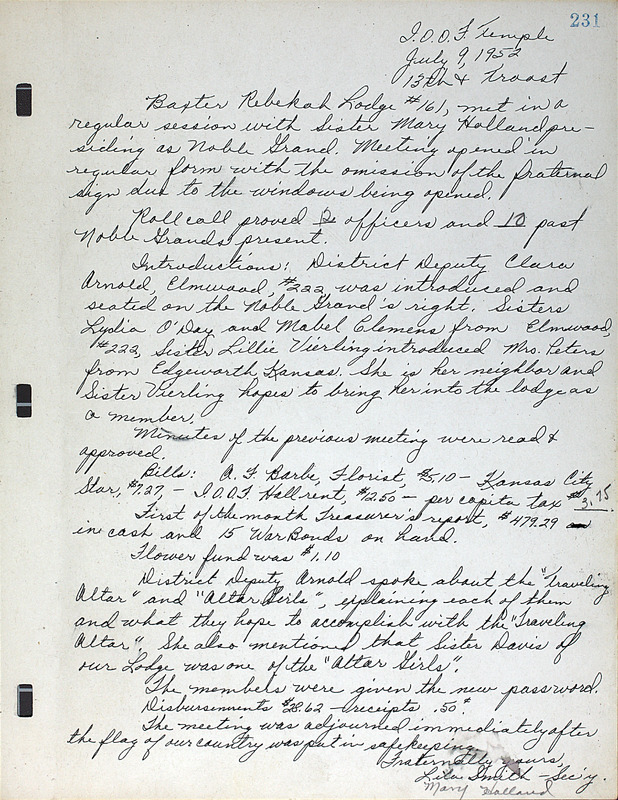 231
I.O.O.F. Temple
July 9, 1952
13th & Troost
Baxter Rebekah Lodge #161, met in a
regular session with Sister Mary Holland pre-
siding as Noble Grand. Meeting opened in
regular form with the omission of the fraternal
sign due to the windows being opened.
Roll call proved officers and 10 past
Noble Grands present.
Introductions: District Deputy Clara
Arnold, Elmwood, #222 was introduced and
seated on the Noble Grand's right. Sisters
Lydia O'Day and Mabel Clemens from Elmwood,
#222, Sister Lillie Vierling introduced Mrs. Peters
from Edgeworth Kansas. She is her neighbor and
Sister Vierling hopes to bring her into the lodge as
a member.
Minutes of the previous meeting were read &
approved.
Bills: A. F. Barbe, Florist, $5.10 - Kansas City
Star, $7.27, - I.O.O.F. Hall rent, $12.50 - per capita tax $3.75
First of the month Treasurer's report, $479.29
in cash and 15 War Bonds on hand.
Flower fund was $1.10
District Deputy Arnold spoke about the "Traveling
Altar" and "Altar Girls", explaining each of them
and what they hope to accomplish with the "Traveling
Altar". She also mentioned that Sister Davis of
our Lodge was one of the "Altar Girls".
The members were given the new password.
Disbursements $28.62 - receipts .50¢
The meeting was adjourned immediately after
the flag of our country was put in safekeeping.
Fraternally yours,
Lila Smith - Sec'y.
Mary Holland